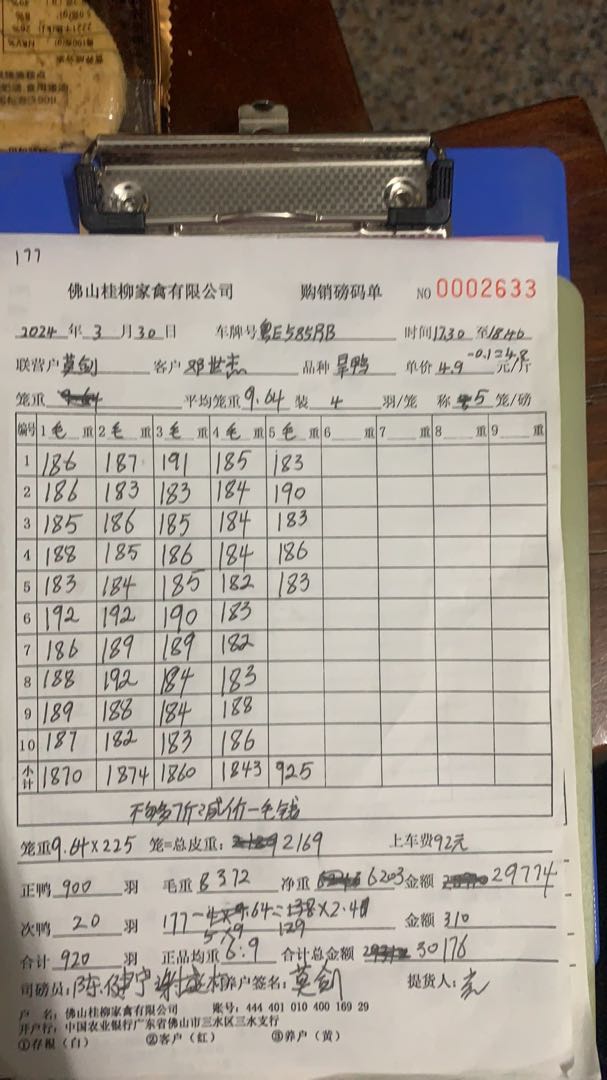 177
佛山桂柳家禽有限公司 购销磅码单 NO 0002633
2024 年 3 月 30 日 车牌号 粤E585RB 时间 17.30 至 18.40
联营户 莫剑 客户 邓世杰 品种 旱鸭 单价 4.9 -0.1=4.8 元/斤
笼重 平均笼重 9.64 装 4 羽/笼 称 5 笼/磅
编号 1 毛 重 2 毛 重 3 毛 重 4 毛 重 5 毛 重 6 重 7 重 8 重 9 重
1 186 187 191 185 183
2 186 183 183 184 190
3 185 186 185 184 183
4 188 185 186 184 186
5 183 184 185 182 183
6 192 192 190 183
7 186 189 189 182
8 188 192 184 183
9 189 188 184 188
10 187 182 183 186
小计 1870 1874 1860 1843 925
不够7斤减价一毛钱
笼重 9.64×225 笼=总皮重: 2169 上车费 92元
正鸭 900 羽 毛重 8372 净重 6203 金额 29774
次鸭 20 羽 177-4×9.64=138×2.40 金额 310
5×9 129
合计 920 羽 正品均重 6.9 合计总金额 30176
司磅员: 养户签名: 莫剑 提货人:
户 名: 佛山桂柳家禽有限公司 账号: 444 401 010 400 169 29
开户行: 中国农业银行广东省佛山市三水区三水支行
①存根(白) ②客户(红) ③养户(黄)